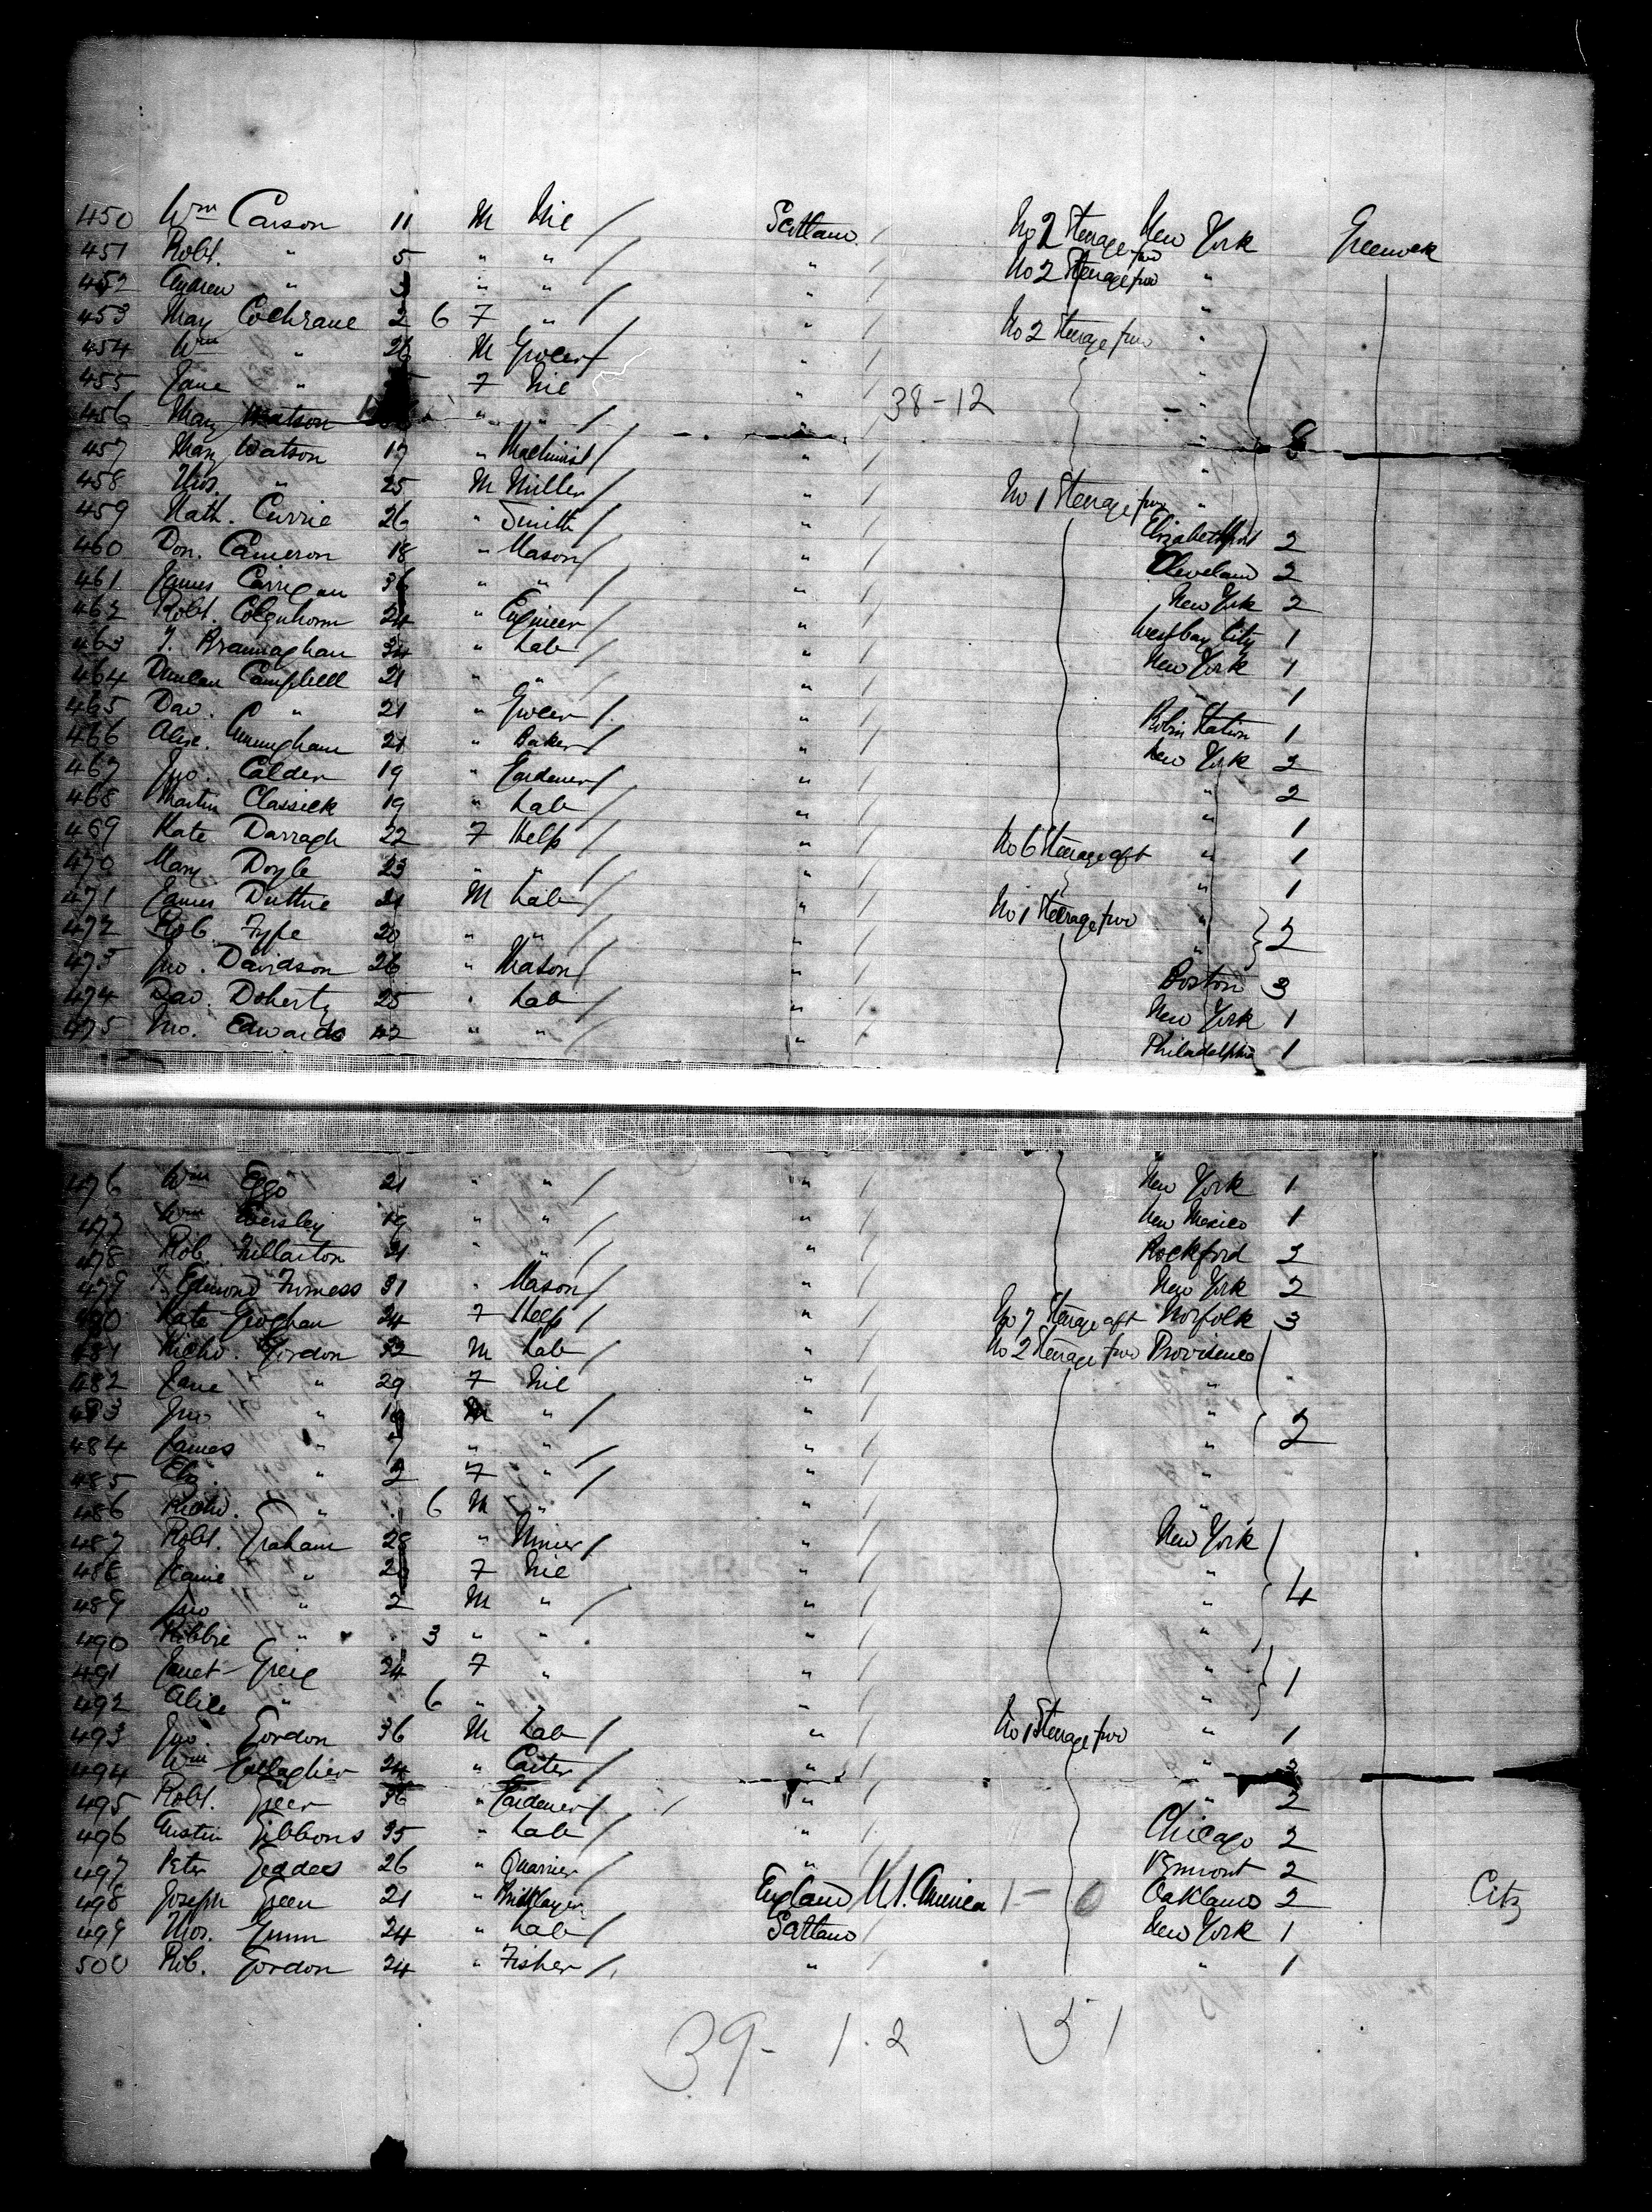 450 Wm Carson 11 M Nil / Scotland / No 2 Steerage fwd New York Greenock
451 Robt. " 5 " " / " / No 2 Steerage fwd "
452 Andrew " 3 " " / " / "
453 May Cochrane 2 6 F " / " / No 2 Steerage fwd "
454 Wm " 26 M Grocer / " / "
455 Jane " F Nil " / 38-12 "
456 Mary Watson " " / " / "
457 Mary Watson 17 " Machinist / " / "
458 Thos. " 25 M Miller / " / No 1 Steerage fwd "
459 Nath. Currie 26 " Smith / " / Elizabethport 2
460 Don. Cameron 18 " Mason / " / Cleveland 2
461 James Carrigan 36 " " / " / New York 2
462 Robt. Colquhoun 24 " Engineer / " / West bay City 1
463 T. Brannaghan 34 " Lab / " / New York 1
464 Duncan Campbell 21 " " / " / " 1
465 Dav. " 21 " Grocer / " / Robin Station 1
466 Alex. Cunningham 21 " Baker / " / New York 2
467 Jno. Calder 19 " Gardener / " / " 2
468 Martin Classick 19 " Lab / " / " 1
469 Kate Darragh 22 F Help / " / No 6 Steerage aft " 1
470 Mary Doyle 23 " " / " / " 1
471 James Duthie 21 M Lab / " / No 1 Steerage fwd "
472 Rob. Fyfe 20 " " / " / " 2
473 Jno. Davidson 26 " Mason / " / Boston 3
474 Dav. Doherty 25 " Lab / " / New York 1
475 Jno. Edwards 42 " " / " / Philadelphia 1
476 Wm Eggo 21 " " / " / New York 1
477 Wm Eversley 19 " " / " / New Mexico 1
478 Rob. Fullarton 21 " " / " / Rockford 2
479 T. Edmond Furness 31 " Mason / " / New York 2
480 Kate Geoghan 24 F Help / " / No 7 Steerage aft Norfolk 3
481 Richd. Gordon 32 M Lab / " / No 2 Steerage fwd Providence
482 Jane " 29 F Nil " / "
483 Jno " 10 M " / " / "
484 James " 7 " " / " / " 2
485 Eliz. " 2 F " / " / "
486 Richd. " 6 M " " / "
487 Robt. Graham 28 " Miner / " / New York
488 Jamie " 26 F Nil " / "
489 Jno " 2 M " / " / " 4
490 Ribbie " 3 " " " / "
491 Janet Greig 24 F " " / "
492 Alice " 6 " " " / " 1
493 Jno. Gordon 36 M Lab / " / No 1 Steerage fwd " 1
494 Wm Gallagher 24 " Carter / " / "
495 Robt. Greer 36 " Gardener / " / " 2
496 Austin Gibbons 35 " Lab / " / Chicago 2
497 Peter Geddes 26 " Quarrier / " / Vermont 2
498 Joseph Green 21 " Bricklayer England / U.S. America 1 - 0 Oakland 2 Citz
499 Thos. Gunn 24 " Lab / Scotland / New York 1
500 Rob. Gordon 24 " Fisher / " / " 1
39- 1.2 51